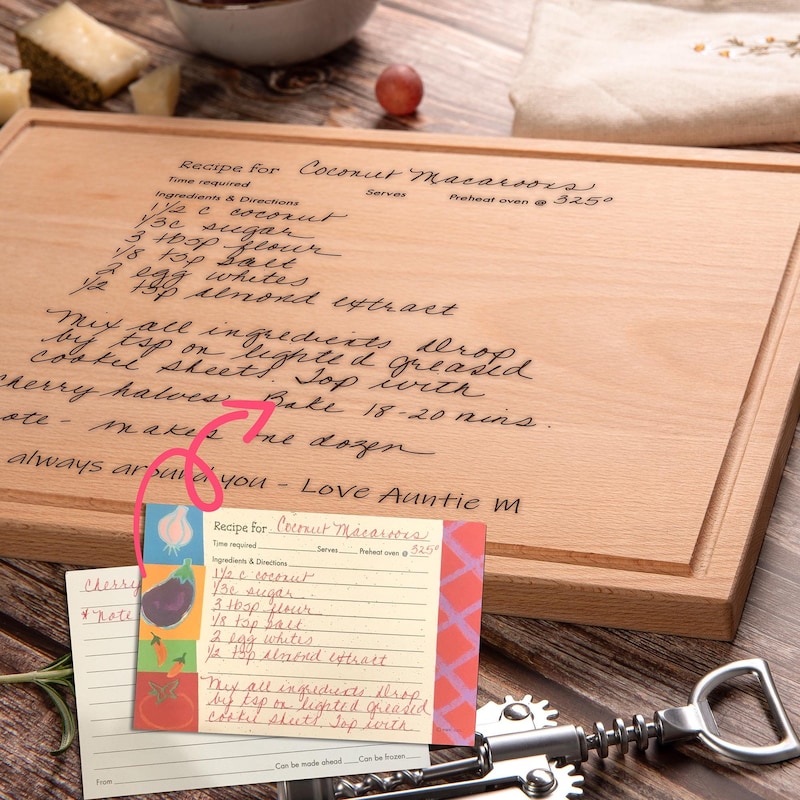 Recipe for Coconut Macaroons
Time required Serves Preheat oven @ 325°
Ingredients & Directions
1 1/2 c coconut
1/3 c sugar
3 tbsp flour
1/8 tsp salt
2 egg whites
1/2 tsp almond extract
Mix all ingredients Drop
by tsp on lighted greased
cookie sheets. Top with
cherry halves. Bake 18-20 mins.
ote - makes one dozen
always around you - Love Auntie M
Recipe for Coconut Macaroons
Time required Serves Preheat oven @ 325°
Ingredients & Directions
1 1/2 c coconut
1/3 c sugar
3 tbsp flour
1/8 tsp salt
2 egg whites
1/2 tsp almond extract
Mix all ingredients Drop
by tsp on lighted greased
cookie sheets Top with
Cherry
* Note
Can be made ahead Can be frozen
From